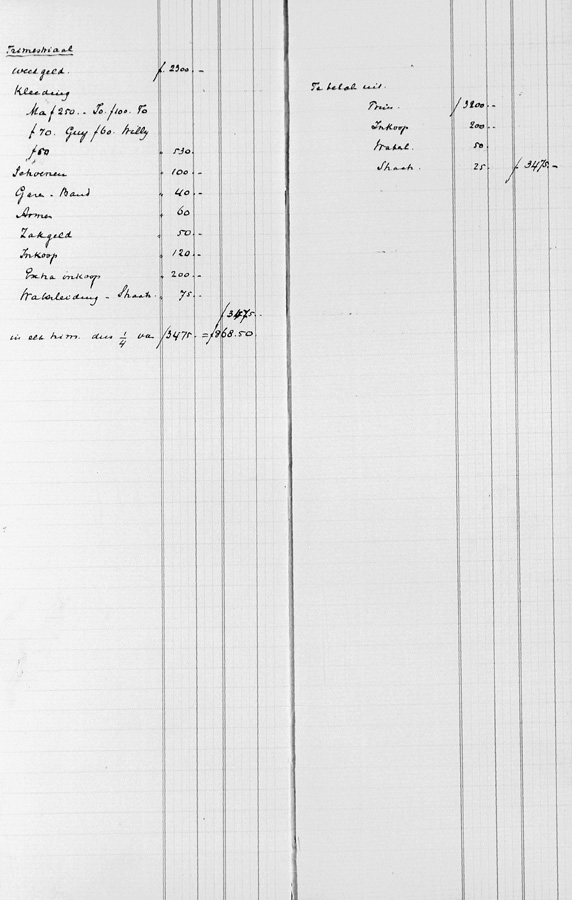 Trimestriaal
Weekgeld. f 2300.-
Kleeding
Ma f 250.- Jo. f100. To
f 70. Guy f60. Willy
f50 " 530.-
Schoenen " 100.-
Gera - Band " 40.-
Armen " 60
Zakgeld " 50.-
Inkoop " 120.-
Extra inkoop " 200.-
Waterleiding - Straatb. " 75.-
f 3475.-
in elk trim. dus 1/4 va f3475.- = f868.50.
Te betal uit.
Trim. f 3200.-
Inkoop 200.-
Watal. 50.
Straatb. 25. f 3475.-